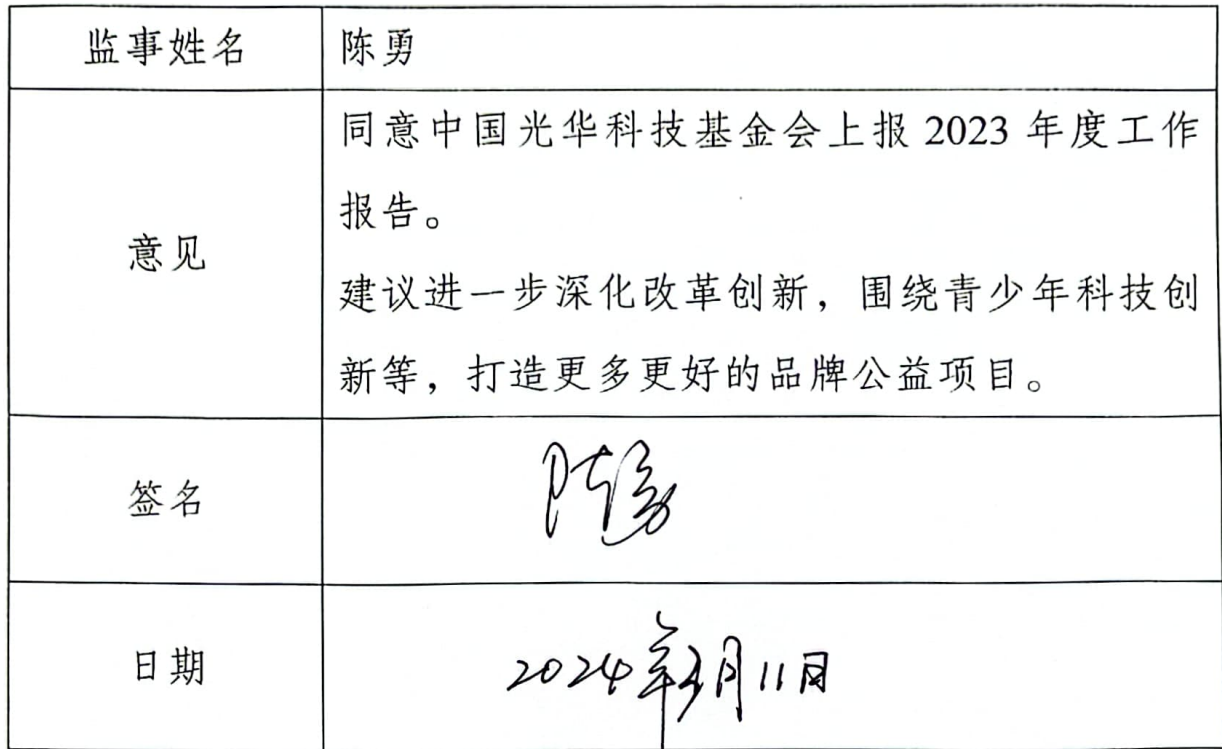 监事姓名 陈勇
同意中国光华科技基金会上报 2023 年度工作
报告。
意见
建议进一步深化改革创新，围绕青少年科技创
新等，打造更多更好的品牌公益项目。
签名 陈勇
日期 2024年3月11日